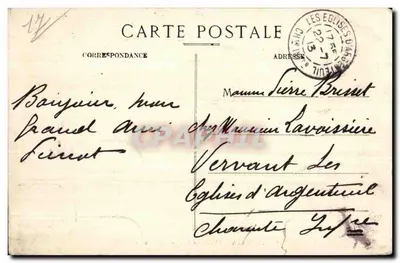 17
CARTE POSTALE
CORRESPONDANCE
ADRESSE
LES EGLISES D'ARGENTEUIL
17
22 - 7
13
Bonjour, mon
grand ami
Pierrot
Madame Pierre Brisset
chez Monsieur Lavoissière
Vervant Les
Eglises d'Argenteuil
Charente Infre